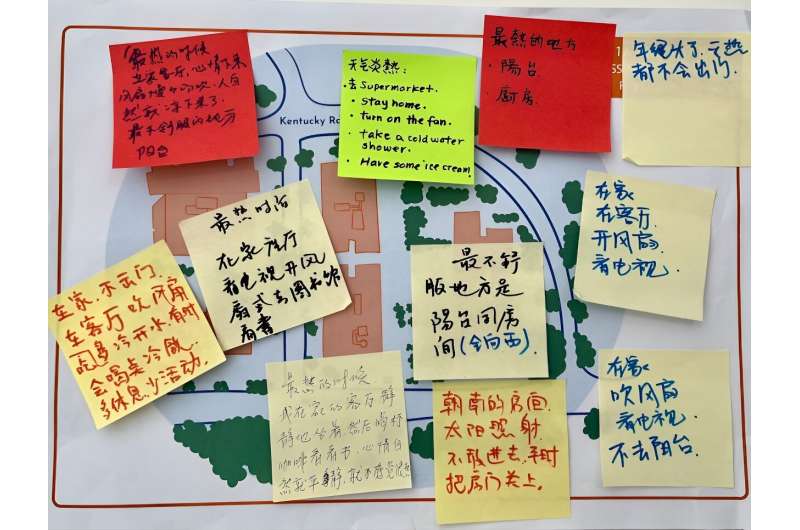 最热的时候
在家客厅，心情下来
风扇慢々的吹，人自
然就凉下来了.
最不舒服的地方
阳台
天气炎熱：
·去Supermarket.
· Stay home.
· turn on the fan.
· take a cold water
shower.
· Have some ice cream
最熱的地方
· 陽台.
· 厨房.
年纪大了，天热
都不会出门.
Kentucky Ro
最热时治
在家客厅
看电视开风
扇或去图书馆
看書
在家
在客厅
开风扇
看电视.
在家，不出门.
在客厅吹风扇
喝多冷开水，有时
会喝桌冷饮
多休息，少活动.
最不舒
服地方是
陽台同房
间(全向西).
最热的时候
我在家的客厅静
静地坐着，然后喝杯
咖啡看看书，心情自
然就平静，就不感觉
朝南的房间.
太阳照射
不敢进去，平时
把房门关上.
在家
吹风扇
看电视
不去阳台.